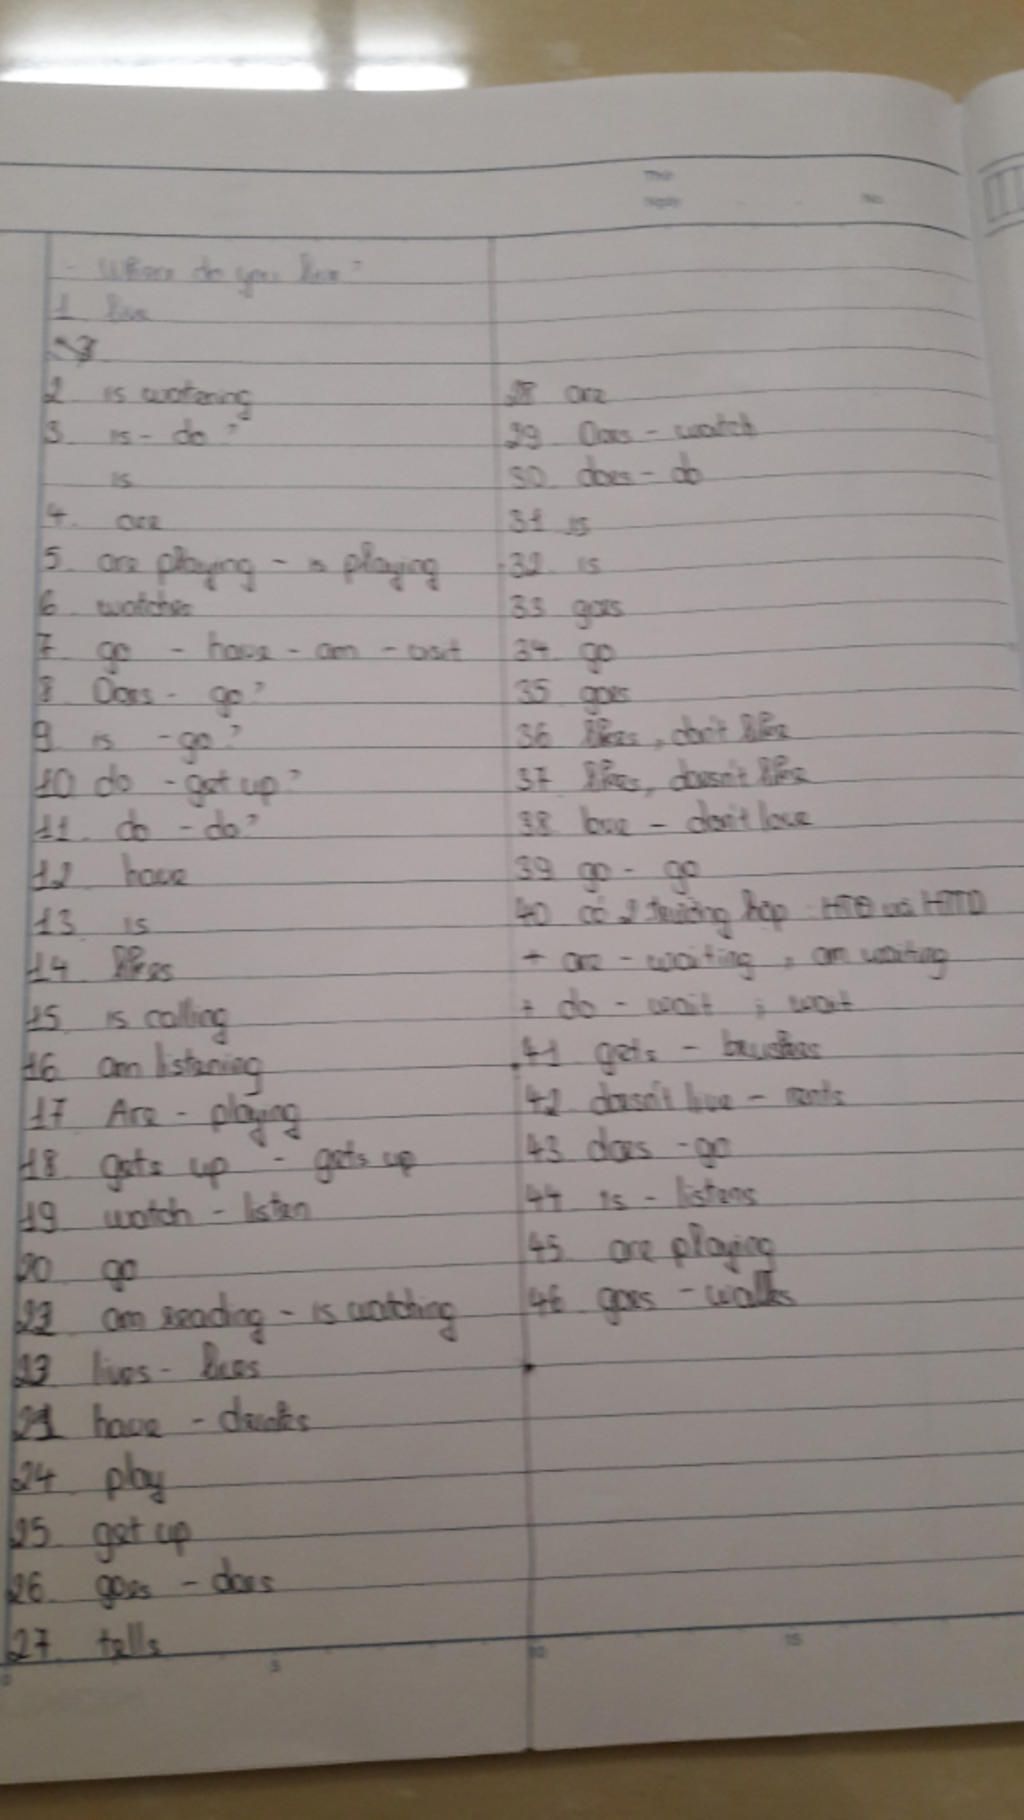 Thứ
Ngày . . No.
- Where do you live?
1 live
2 is watering
3. is - do?
is
4. are
5. are playing - is playing
6. watches
7. go - have - am - wait
8. Does - go?
9 is - go?
10 do - get up?
11. do - do?
12 have
13 is
14 likes
15 is calling
16 am listening
17 Are - playing
18. gets up - gets up
19 watch - listen
20 go
22 am reading - is watching
23 lives - likes
21 have - drinks
24. play
25. get up
26. goes - does
27. tells
28 are
29. Does - watch
30. does - do
31 is
32. is
33 goes
34. go
35 goes
36 likes, don't like
37. likes, doesn't like
38 love - don't love
39. go - go
40 có 2 trường hợp: HTĐ và HTTD
+ are - waiting, am waiting
+ do - wait ; wait
41 gets - brushes
42. doesn't live - rents
43. does - go
44 is - listens
45. are playing
46. goes - walks
0 5 10 15